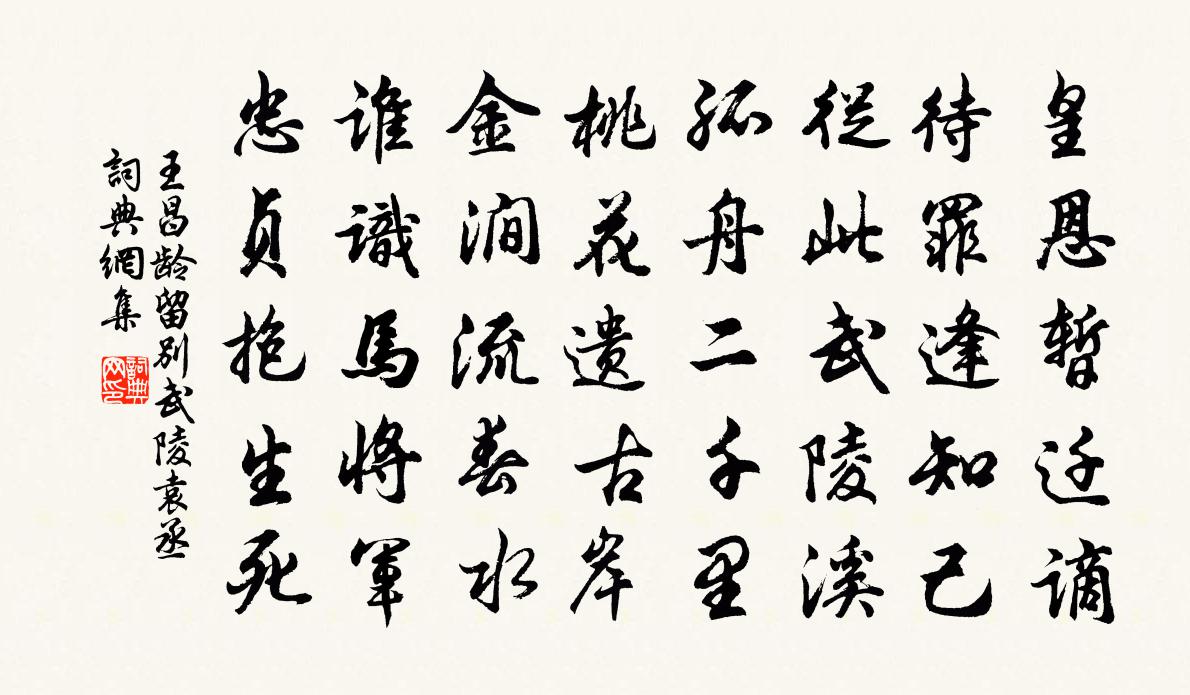 皇恩暫迁謫
待罪逢知己
從此武陵溪
孤舟二千里
桃花遗古岸
金澗流春水
誰識馬將軍
忠貞抱生死
王昌龄留别武陵袁丞
詞典網集
詞典
网印